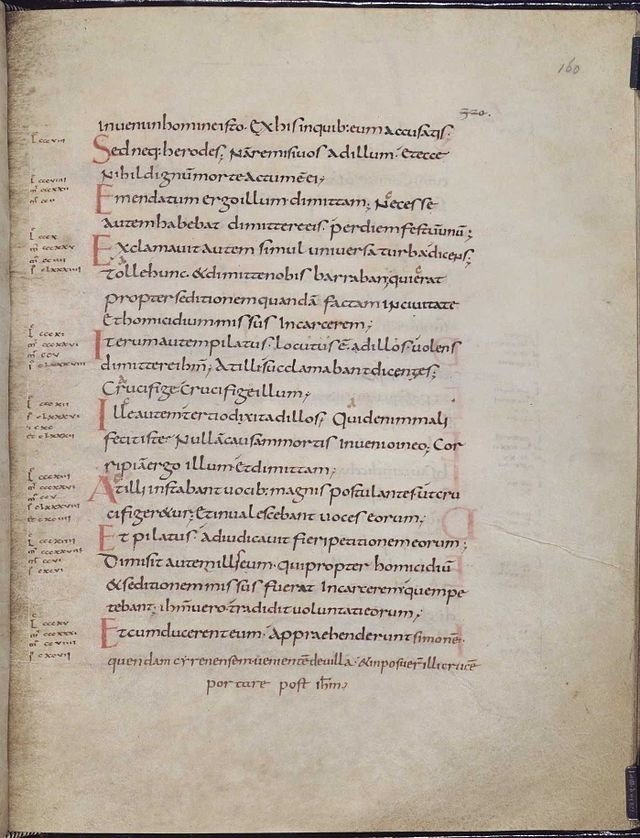 160
320.
inuenin homineisto. Exhisinquib: eum accusatis.
Sedneq: herodes; Nãremisiuos adillum. Etecce
Nihil dignũ morte actumẽ ei;
Emendatum ergo illum dimittam; Necesse
autem habebat dimittere eis. per diem festũ unũ;
Exclamauit autem simul uniuersa turba dicens;
Tolle hunc. & dimitte nobis barraban; qui erat
propter seditionem quandã factam in ciuitate
Et homicidium missus in carcerem;
Iterum autem pilatus. locutus ẽ. adillos. uolens
dimittere ihm̃; Atilli succlamabant dicentes;
Crucifige. Crucifige illum;
Ille autem tertio dixit adillos; Quid enim mali
fecit iste; Nullã causam mortis inuenio in eo; Cor
ripiã ergo illum et dimittam;
Atilli instabant uocib: magnis postulantes ut cru
cifiger&ur; Et inualescebant uoces eorum;
Et pilatus. adiudicauit fieri petitionem eorum;
Dimisit autem illis eum. qui propter homicidiũ
& seditionem missus fuerat in carcerem; quem pe
tebant. ihm̃ uero. tradidit uoluntati eorum;
Et cum ducerent eum. appraehenderunt simonẽ.
quendam cyrenensem uenientẽ de uilla. & inposuer̃ illi crucẽ
portare post ihm̃;